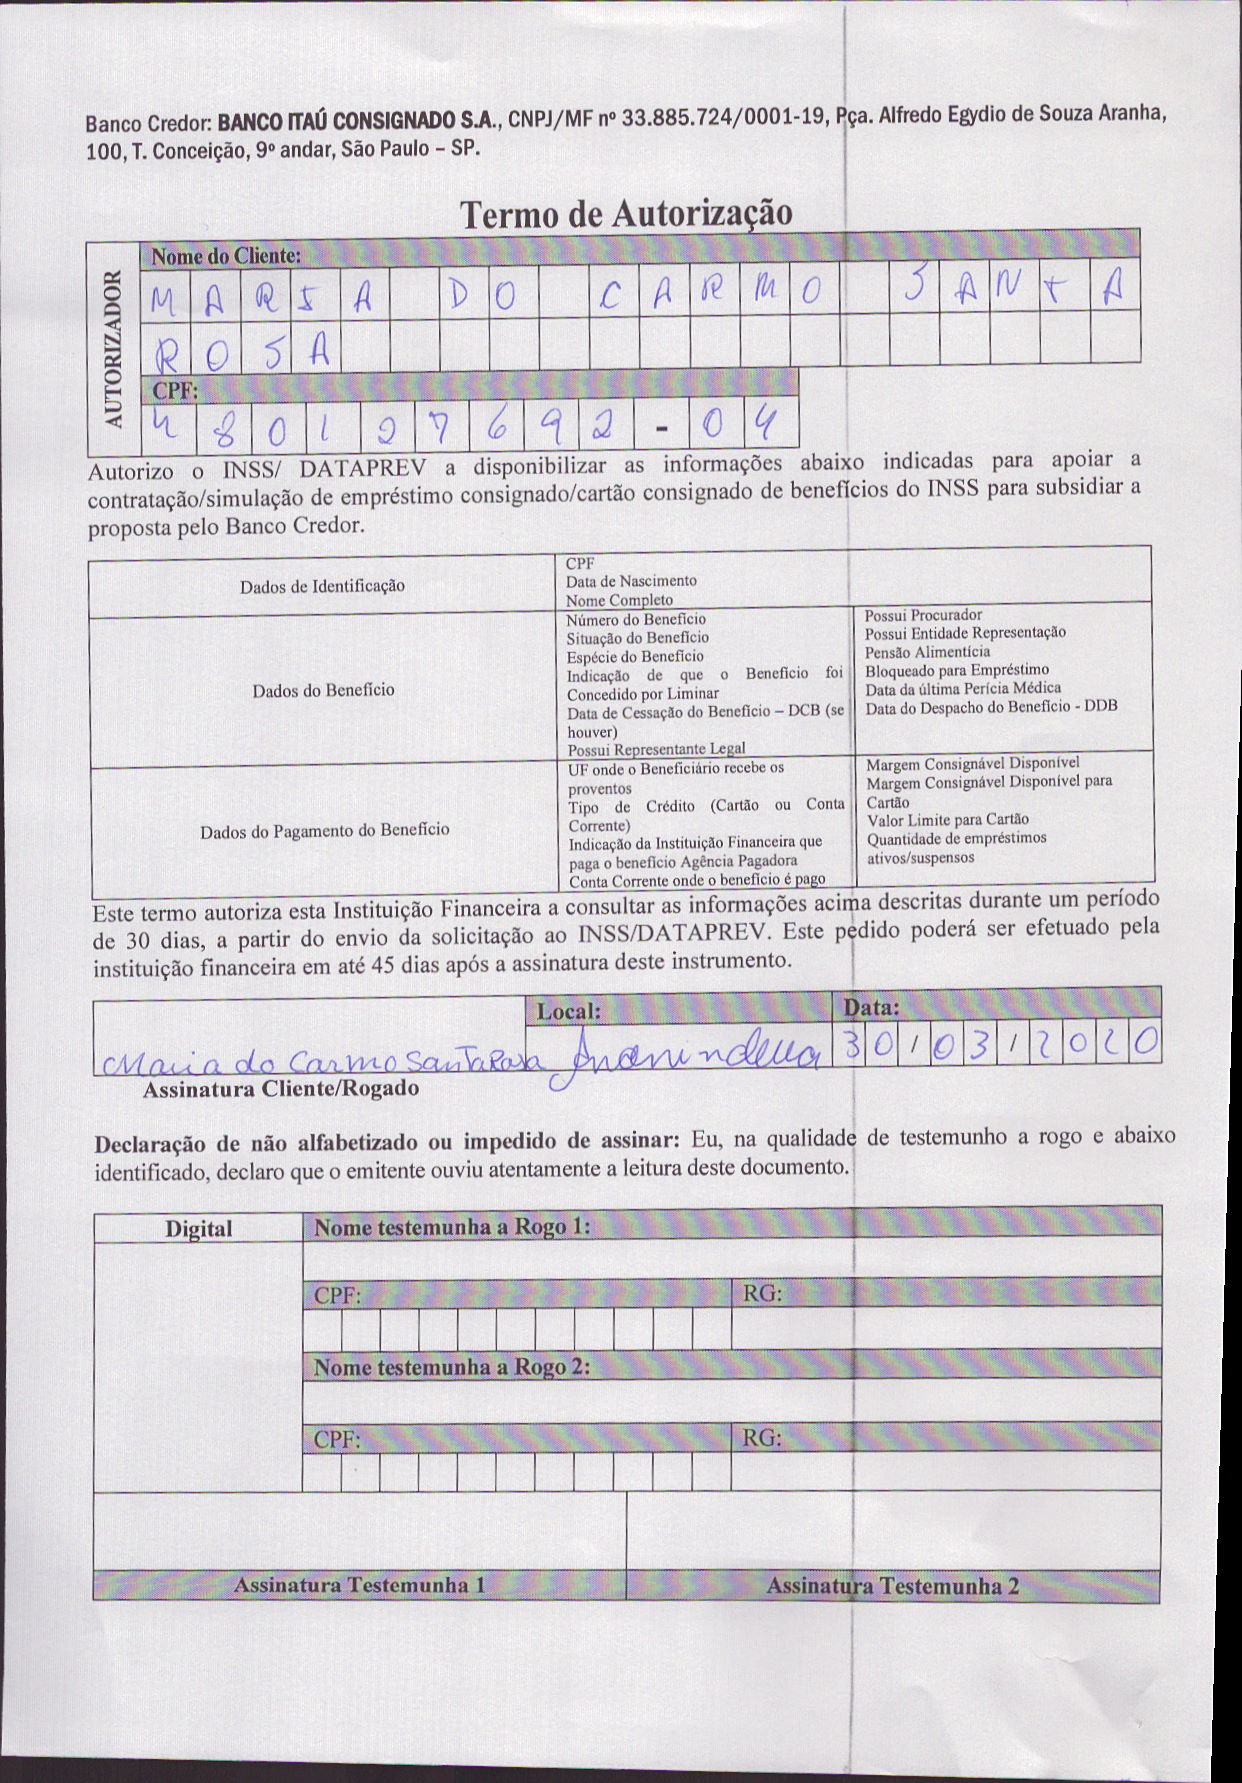 Banco Credor: BANCO ITAÚ CONSIGNADO S.A., CNPJ/MF nº 33.885.724/0001-19, Pça. Alfredo Egydio de Souza Aranha,
100, T. Conceição, 9º andar, São Paulo – SP.
Termo de Autorização
AUTORIZADOR
Nome do Cliente:
MARIA DO CARMO SANTA
ROSA
CPF:
480127692-04
Autorizo o INSS/ DATAPREV a disponibilizar as informações abaixo indicadas para apoiar a
contratação/simulação de empréstimo consignado/cartão consignado de benefícios do INSS para subsidiar a
proposta pelo Banco Credor.
Dados de Identificação
CPF
Data de Nascimento
Nome Completo
Dados do Benefício
Número do Benefício
Situação do Benefício
Espécie do Benefício
Indicação de que o Benefício foi
Concedido por Liminar
Data de Cessação do Benefício – DCB (se
houver)
Possui Representante Legal
Possui Procurador
Possui Entidade Representação
Pensão Alimentícia
Bloqueado para Empréstimo
Data da última Perícia Médica
Data do Despacho do Benefício - DDB
Dados do Pagamento do Benefício
UF onde o Beneficiário recebe os
proventos
Tipo de Crédito (Cartão ou Conta
Corrente)
Indicação da Instituição Financeira que
paga o benefício Agência Pagadora
Conta Corrente onde o benefício é pago
Margem Consignável Disponível
Margem Consignável Disponível para
Cartão
Valor Limite para Cartão
Quantidade de empréstimos
ativos/suspensos
Este termo autoriza esta Instituição Financeira a consultar as informações acima descritas durante um período
de 30 dias, a partir do envio da solicitação ao INSS/DATAPREV. Este pedido poderá ser efetuado pela
instituição financeira em até 45 dias após a assinatura deste instrumento.
Local: Data:
Maria do Carmo Santa Rosa Ananindeua 30/03/2020
Assinatura Cliente/Rogado
Declaração de não alfabetizado ou impedido de assinar: Eu, na qualidade de testemunho a rogo e abaixo
identificado, declaro que o emitente ouviu atentamente a leitura deste documento.
Digital
Nome testemunha a Rogo 1:
CPF: RG:
Nome testemunha a Rogo 2:
CPF: RG:
Assinatura Testemunha 1 Assinatura Testemunha 2